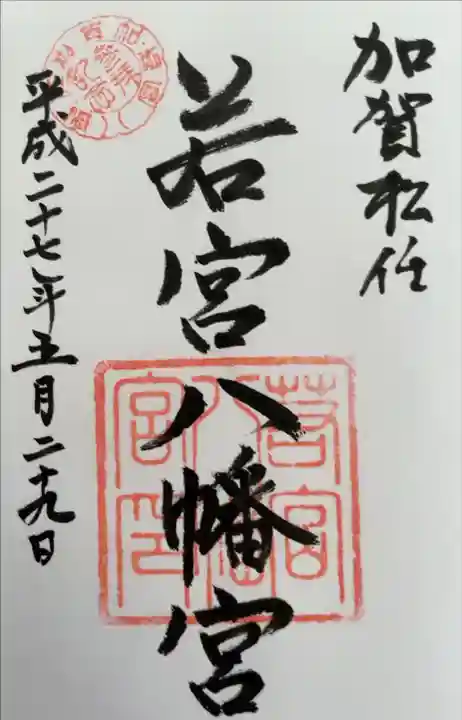 加賀松任
若宮八幡宮
平成二十七年五月二十九日
若宮八幡宮印